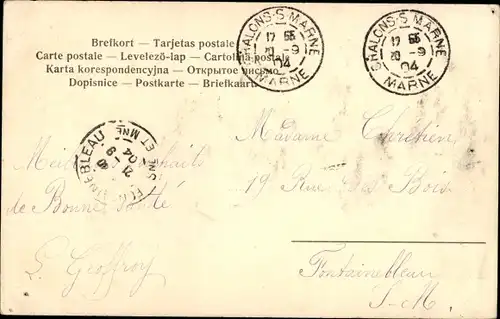 Brefkort — Tarjetas postale
Carte postale — Levelező-lap — Cartolina postale
Karta korespondencyjna — Открытое письмо
Dopisnice — Postkarte — Briefkaart
CHALONS-S-MARNE
17 55
20 -9
04
MARNE
CHALONS-S-MARNE
17 55
20 -9
04
MARNE
FONTAINEBLEAU
21 -9
04
SNE ET MNE
Madame Chrétien
19 Rue des Bois
Fontainebleau
S-M.
Meilleurs souhaits
de Bonne Santé
L. Geoffroy